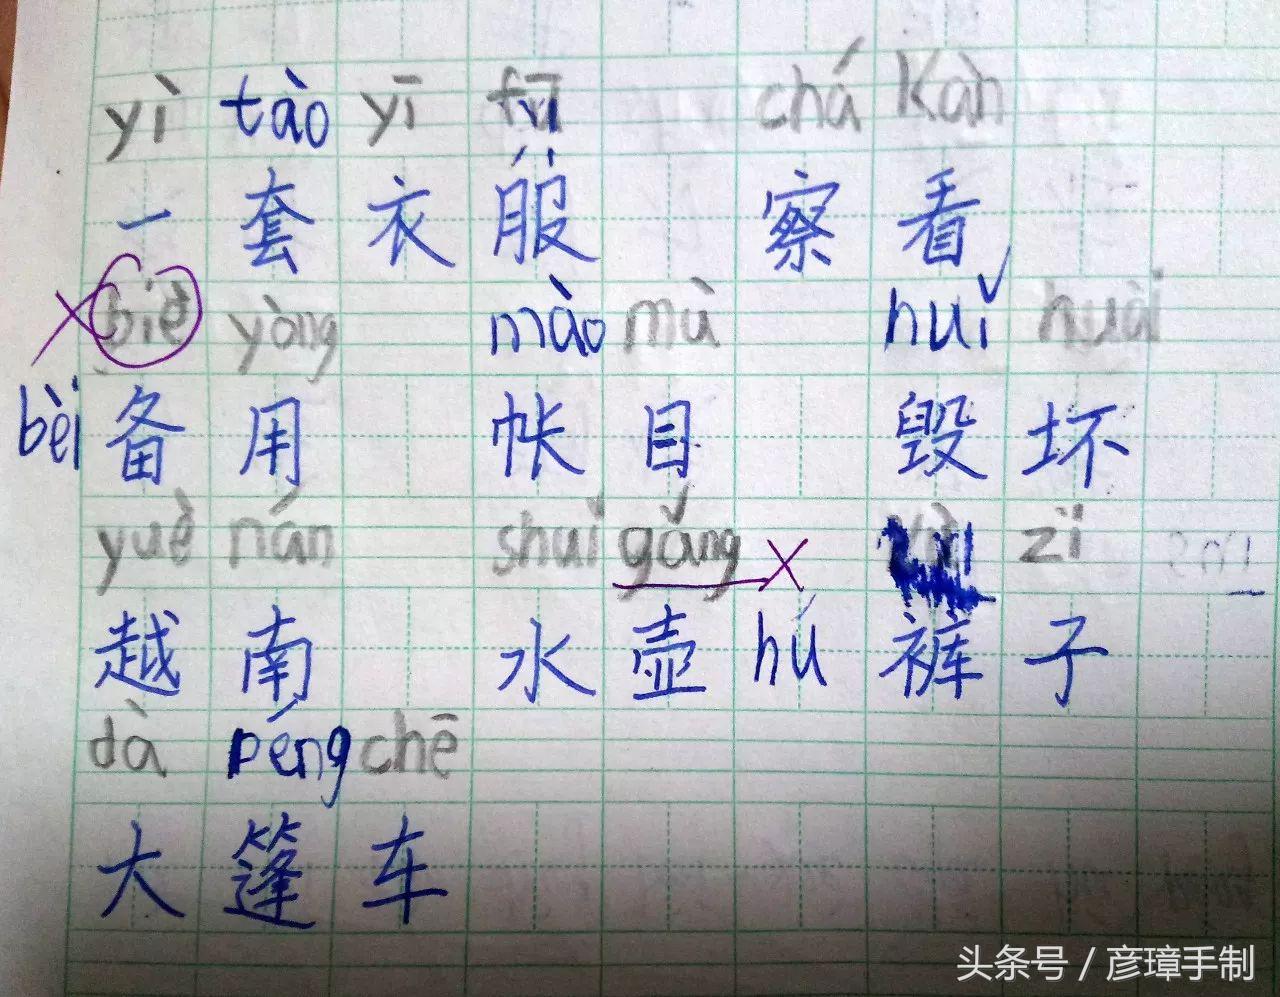 yì tào yī fú chá Kàn
一套衣服 察看
biè yòng mào mù huǐ huài
bèi 备用 帐目 毁坏
yuè nán shuǐ gǎng zi
越南 水壶 hú 裤子
dà péng chē
大篷车
头条号 / 彦璋手制